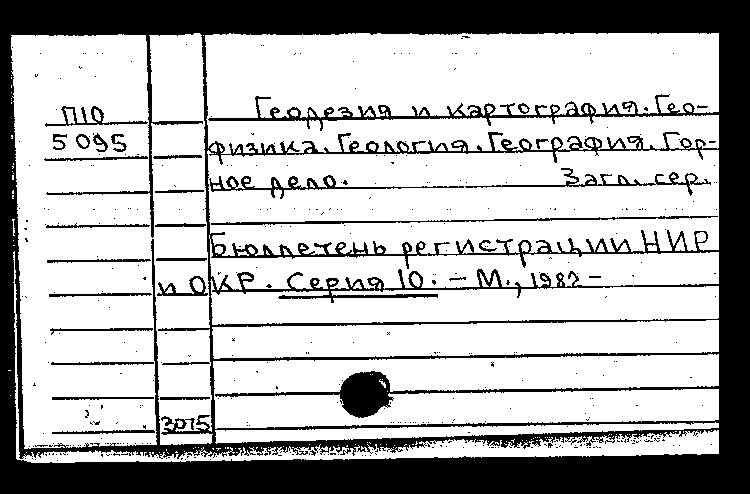 П10
5095
Геодезия и картография. Гео-
физика. Геология. География. Гор-
ное дело. Загл. сер.
Бюллетень регистрации НИР
и ОКР. Серия 10. – М., 1982 –
3075